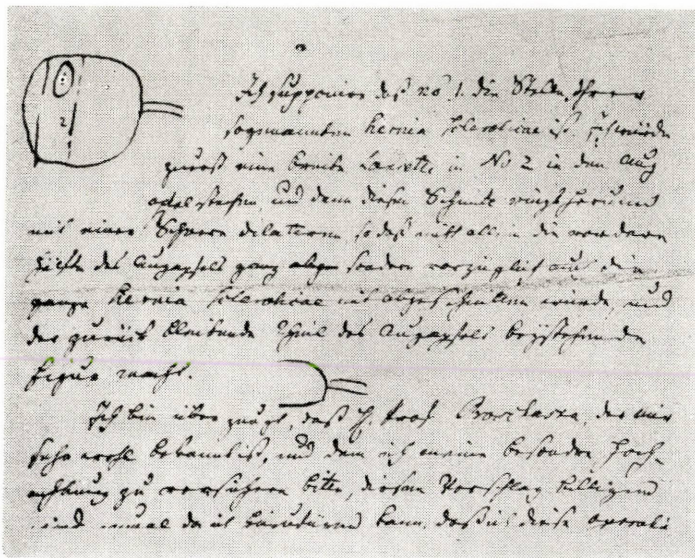 Ich supponire daß no 1. die Stelle Ihrer
sogenannten Hernia scleroticae ist. Ich würde
zuerst eine breite Lancette in No 2 in den Aug
apfel stechen, und dann diesen Schnitt rings herum
mit einer Scheere dilatiren, so daß nicht allein die vordere
Hälfte des Augapfels ganz allein sondern vorzüglich auch die
ganze Hernia scleroticae mit abgeschnitten würde, und
der zurück bleibende Theil des Augapfels beystehende
Figur macht.
Ich bin überzeugt, daß H. Prof. der mir
sehr wohl bekannt ist, und dem ich meine besondre Hoch-
achtung zu versichern bitte, diesen Vorschlag billigen
wird, da ich kann, daß ich diese operati